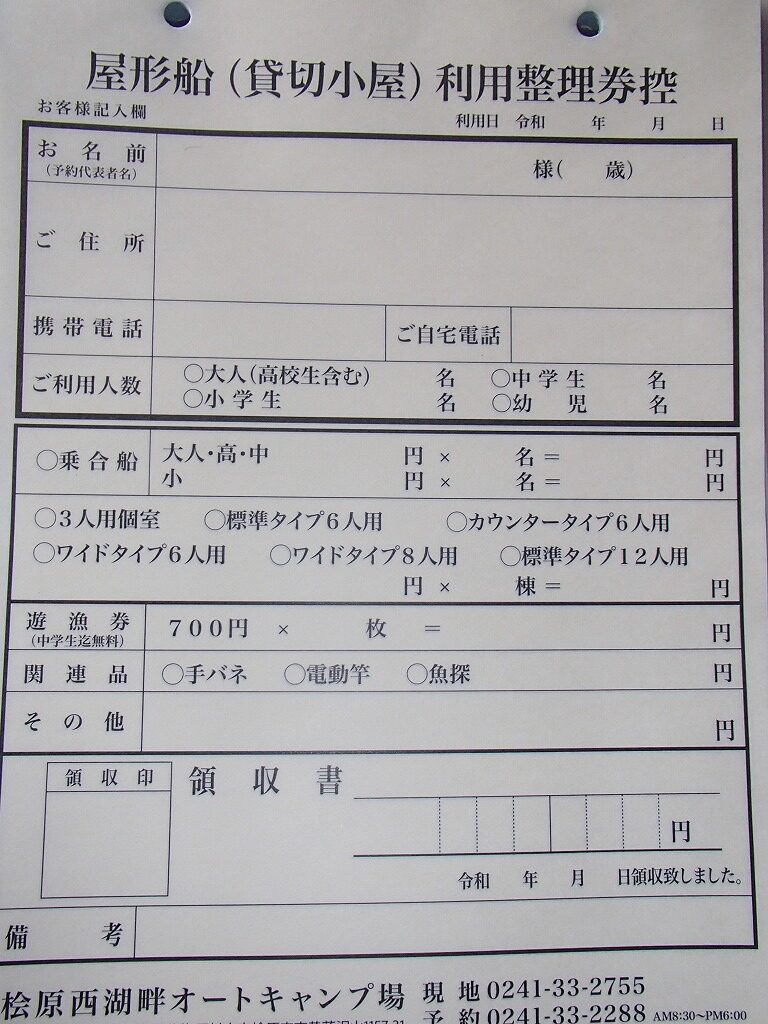 屋形船(貸切小屋)利用整理券控
お客様記入欄
利用日 令和 年 月 日
お名前 様( 歳)
(予約代表者名)
ご住所
携帯電話 ご自宅電話
ご利用人数 ○大人(高校生含む) 名 ○中学生 名
○小学生 名 ○幼児 名
○乗合船 大人・高・中 円 × 名 = 円
小 円 × 名 = 円
○3人用個室 ○標準タイプ6人用 ○カウンタータイプ6人用
○ワイドタイプ6人用 ○ワイドタイプ8人用 ○標準タイプ12人用
円 × 棟 = 円
遊漁券 700円 × 枚 = 円
(中学生迄無料)
関連品 ○手バネ ○電動竿 ○魚探 円
その他 円
領収印 領収書
円
令和 年 月 日領収致しました。
備考
桧原西湖畔オートキャンプ場 現地 0241-33-2755
予約 0241-33-2288 AM8:30~PM6:00